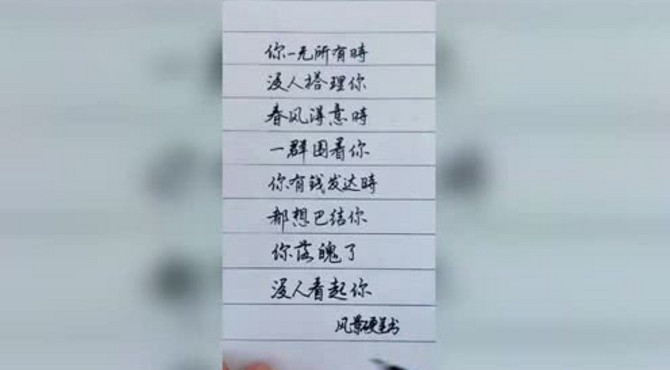 你一无所有時
没人搭理你
春风得意時
一群围着你
你有钱发达時
都想巴结你
你落魄了
没人看起你
风景硬笔书